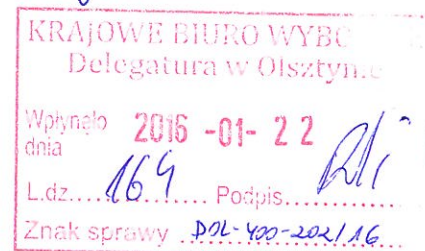 KRAJOWE BIURO WYBO
Delegatura w Olsztynie
Wpłynęło
dnia 2016 -01- 22
L.dz.....169......... Podpis.............
Znak sprawy ..DOL-400-202/16